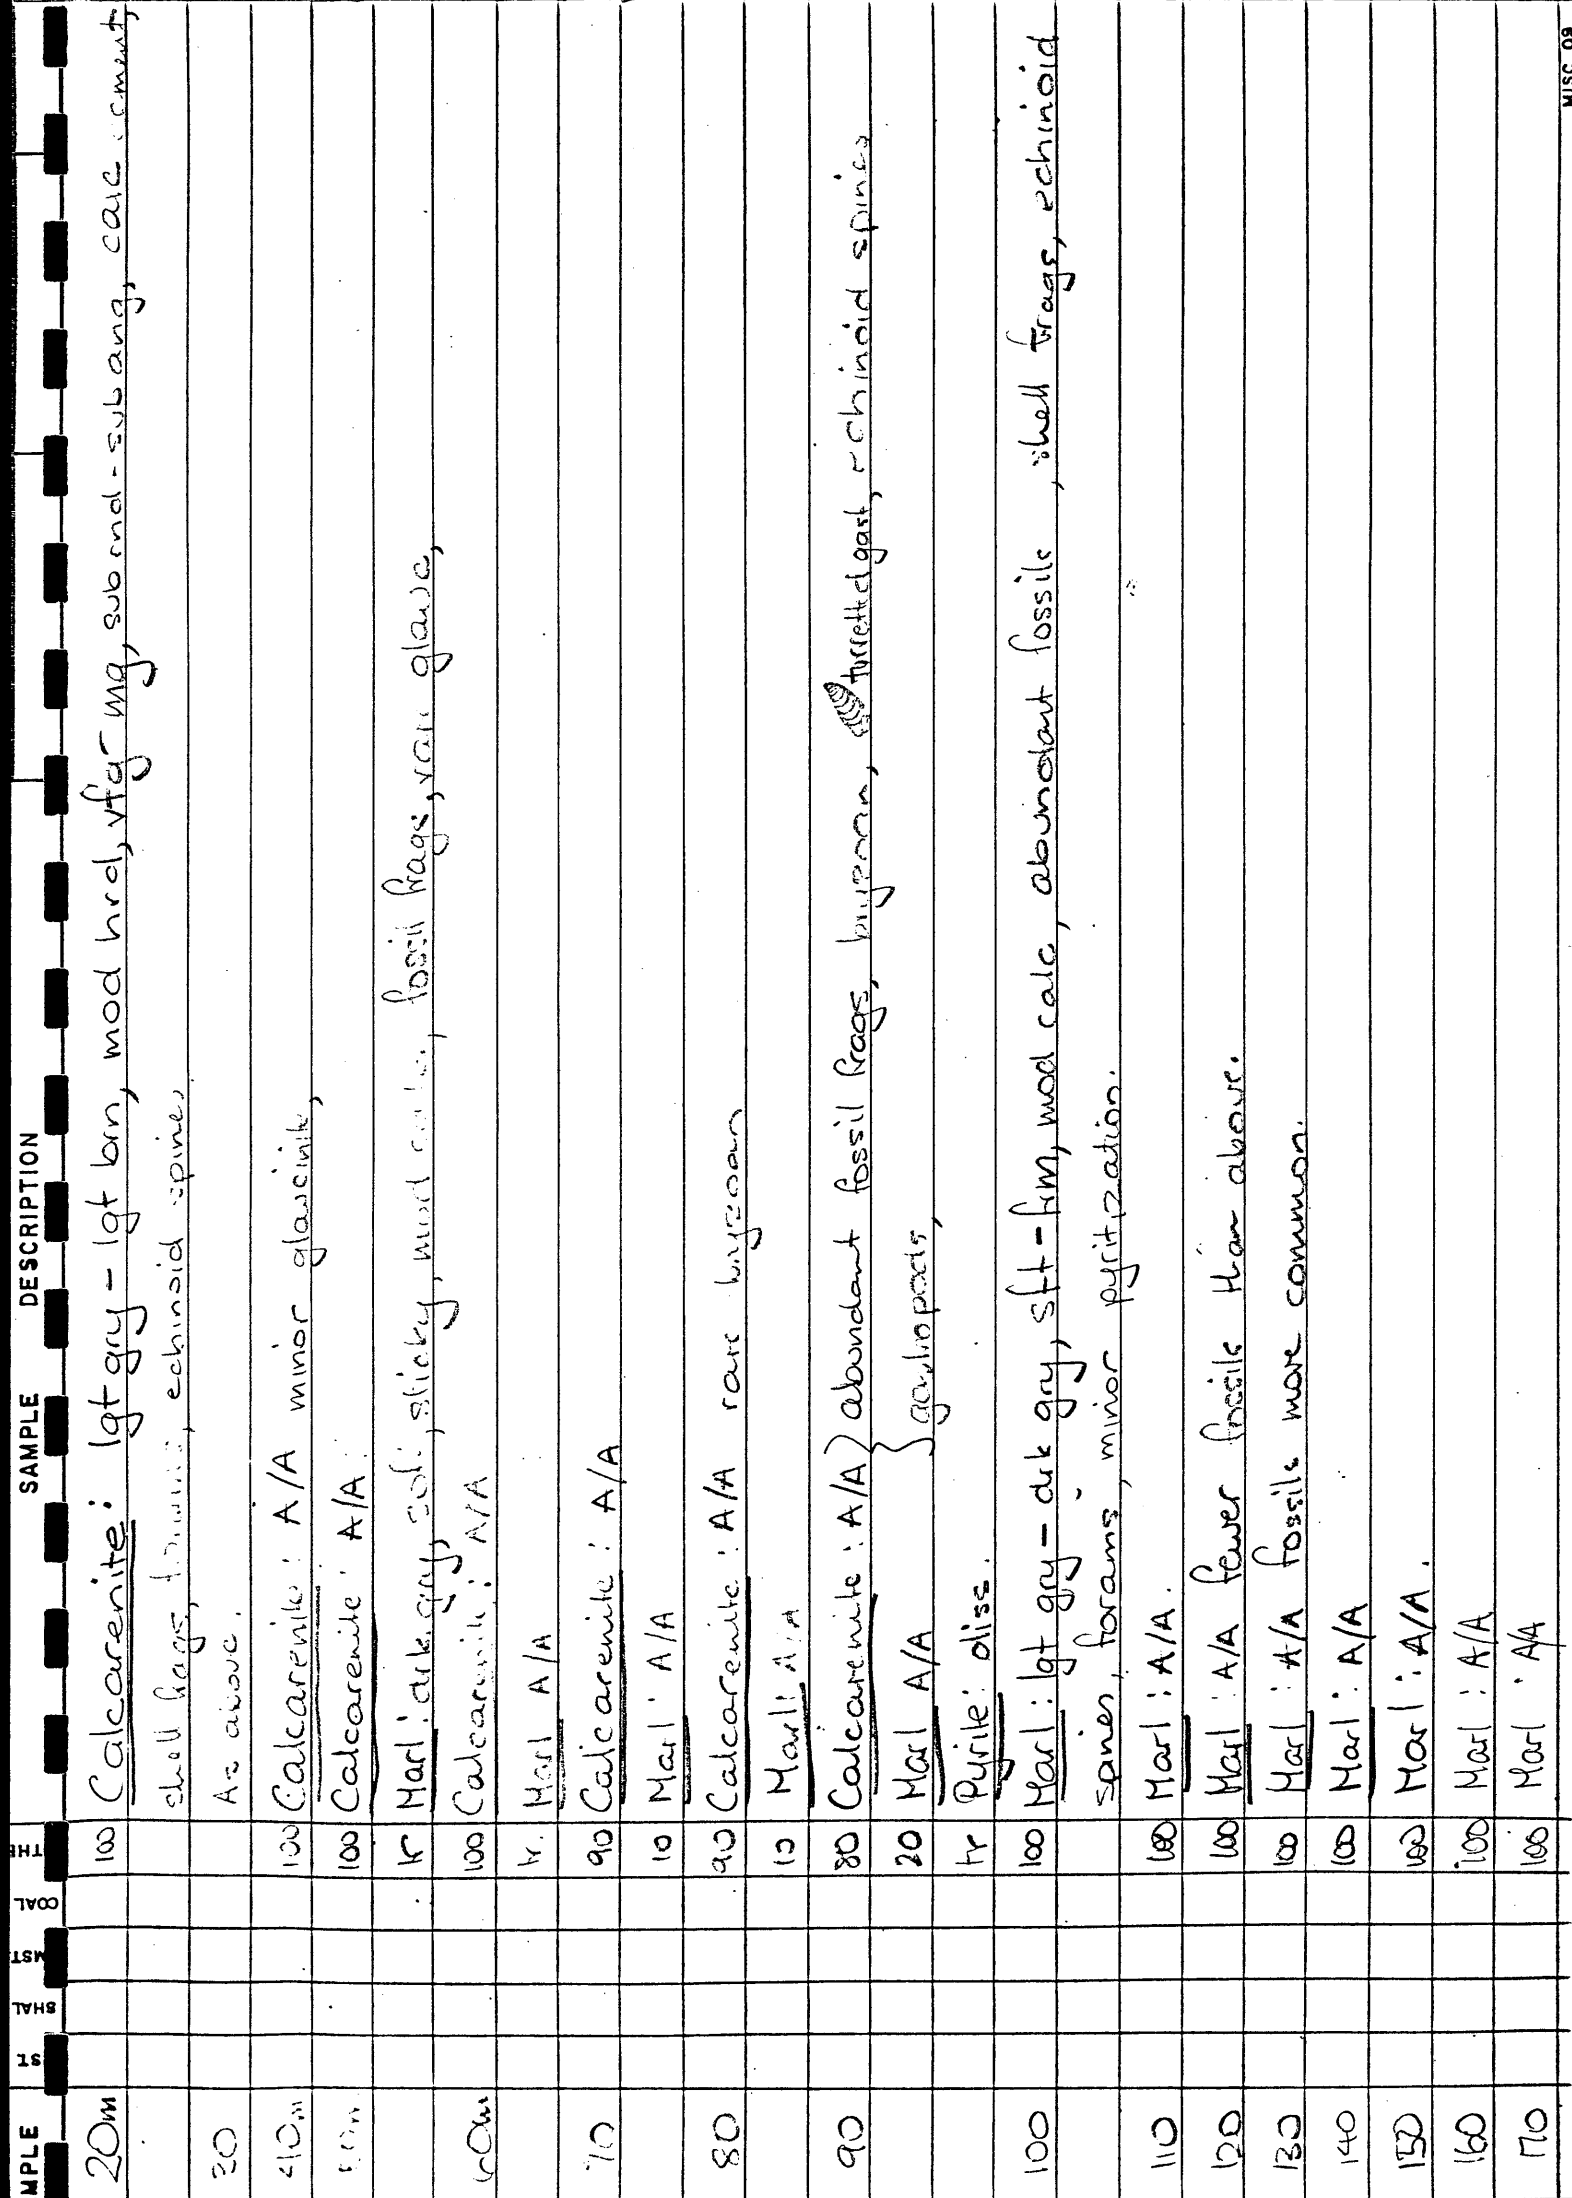 MPLE ST SHAL MST. COAL THE SAMPLE DESCRIPTION
20m 100 Calcarenite: lgt gry - lgt brn, mod hrd, vfg - mg, sub rnd - sub ang, calc cement,
shell frags, echinoid spine,
30 As above.
40m 100 Calcarenite: A/A minor glaucinite,
100 Calcarenite: A/A.
tr Marl: drk gry, soft, sticky, mod calc, fossil frags, rare glauc,
60m 100 Calcarenite: A/A
tr. Marl A/A
70 90 Calcarenite: A/A
10 Marl: A/A
80 90 Calcarenite: A/A rare bryzoan
10 Marl: A/A
90 80 Calcarenite: A/A } abundant fossil frags, bryzoan, turretted gast, echinoid spines
20 Marl A/A } gastropods,
tr Pyrite: diss.
100 100 Marl: lgt gry - drk gry, sft - firm, mod calc, abundant fossils, shell frags, echinoid
spines, forams, minor pyritization.
110 100 Marl: A/A.
120 100 Marl: A/A fewer fossils than above.
130 100 Marl: A/A fossils more common.
140 100 Marl: A/A
150 100 Marl: A/A.
160 100 Marl: A/A
170 100 Marl: A/A
MISC 09